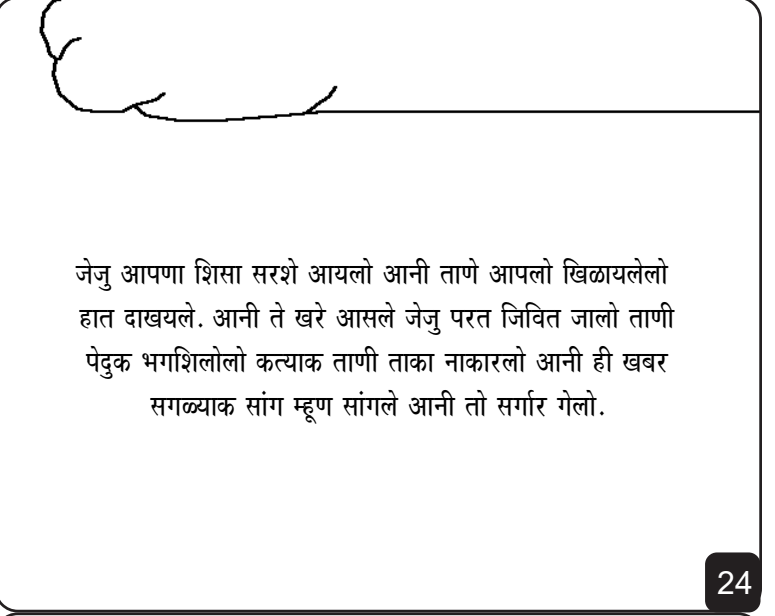 जेजु आपणा शिसा सरशे आयलो आनी ताणे आपलो खिळायलेलो
हात दाखयले. आनी ते खरे आसले जेजु परत जिवित जालो ताणी
पेदुक भगशिलोलो कत्याक ताणी ताका नाकारलो आनी ही खबर
सगळ्याक सांग म्हूण सांगले आनी तो सर्गार गेलो.
24